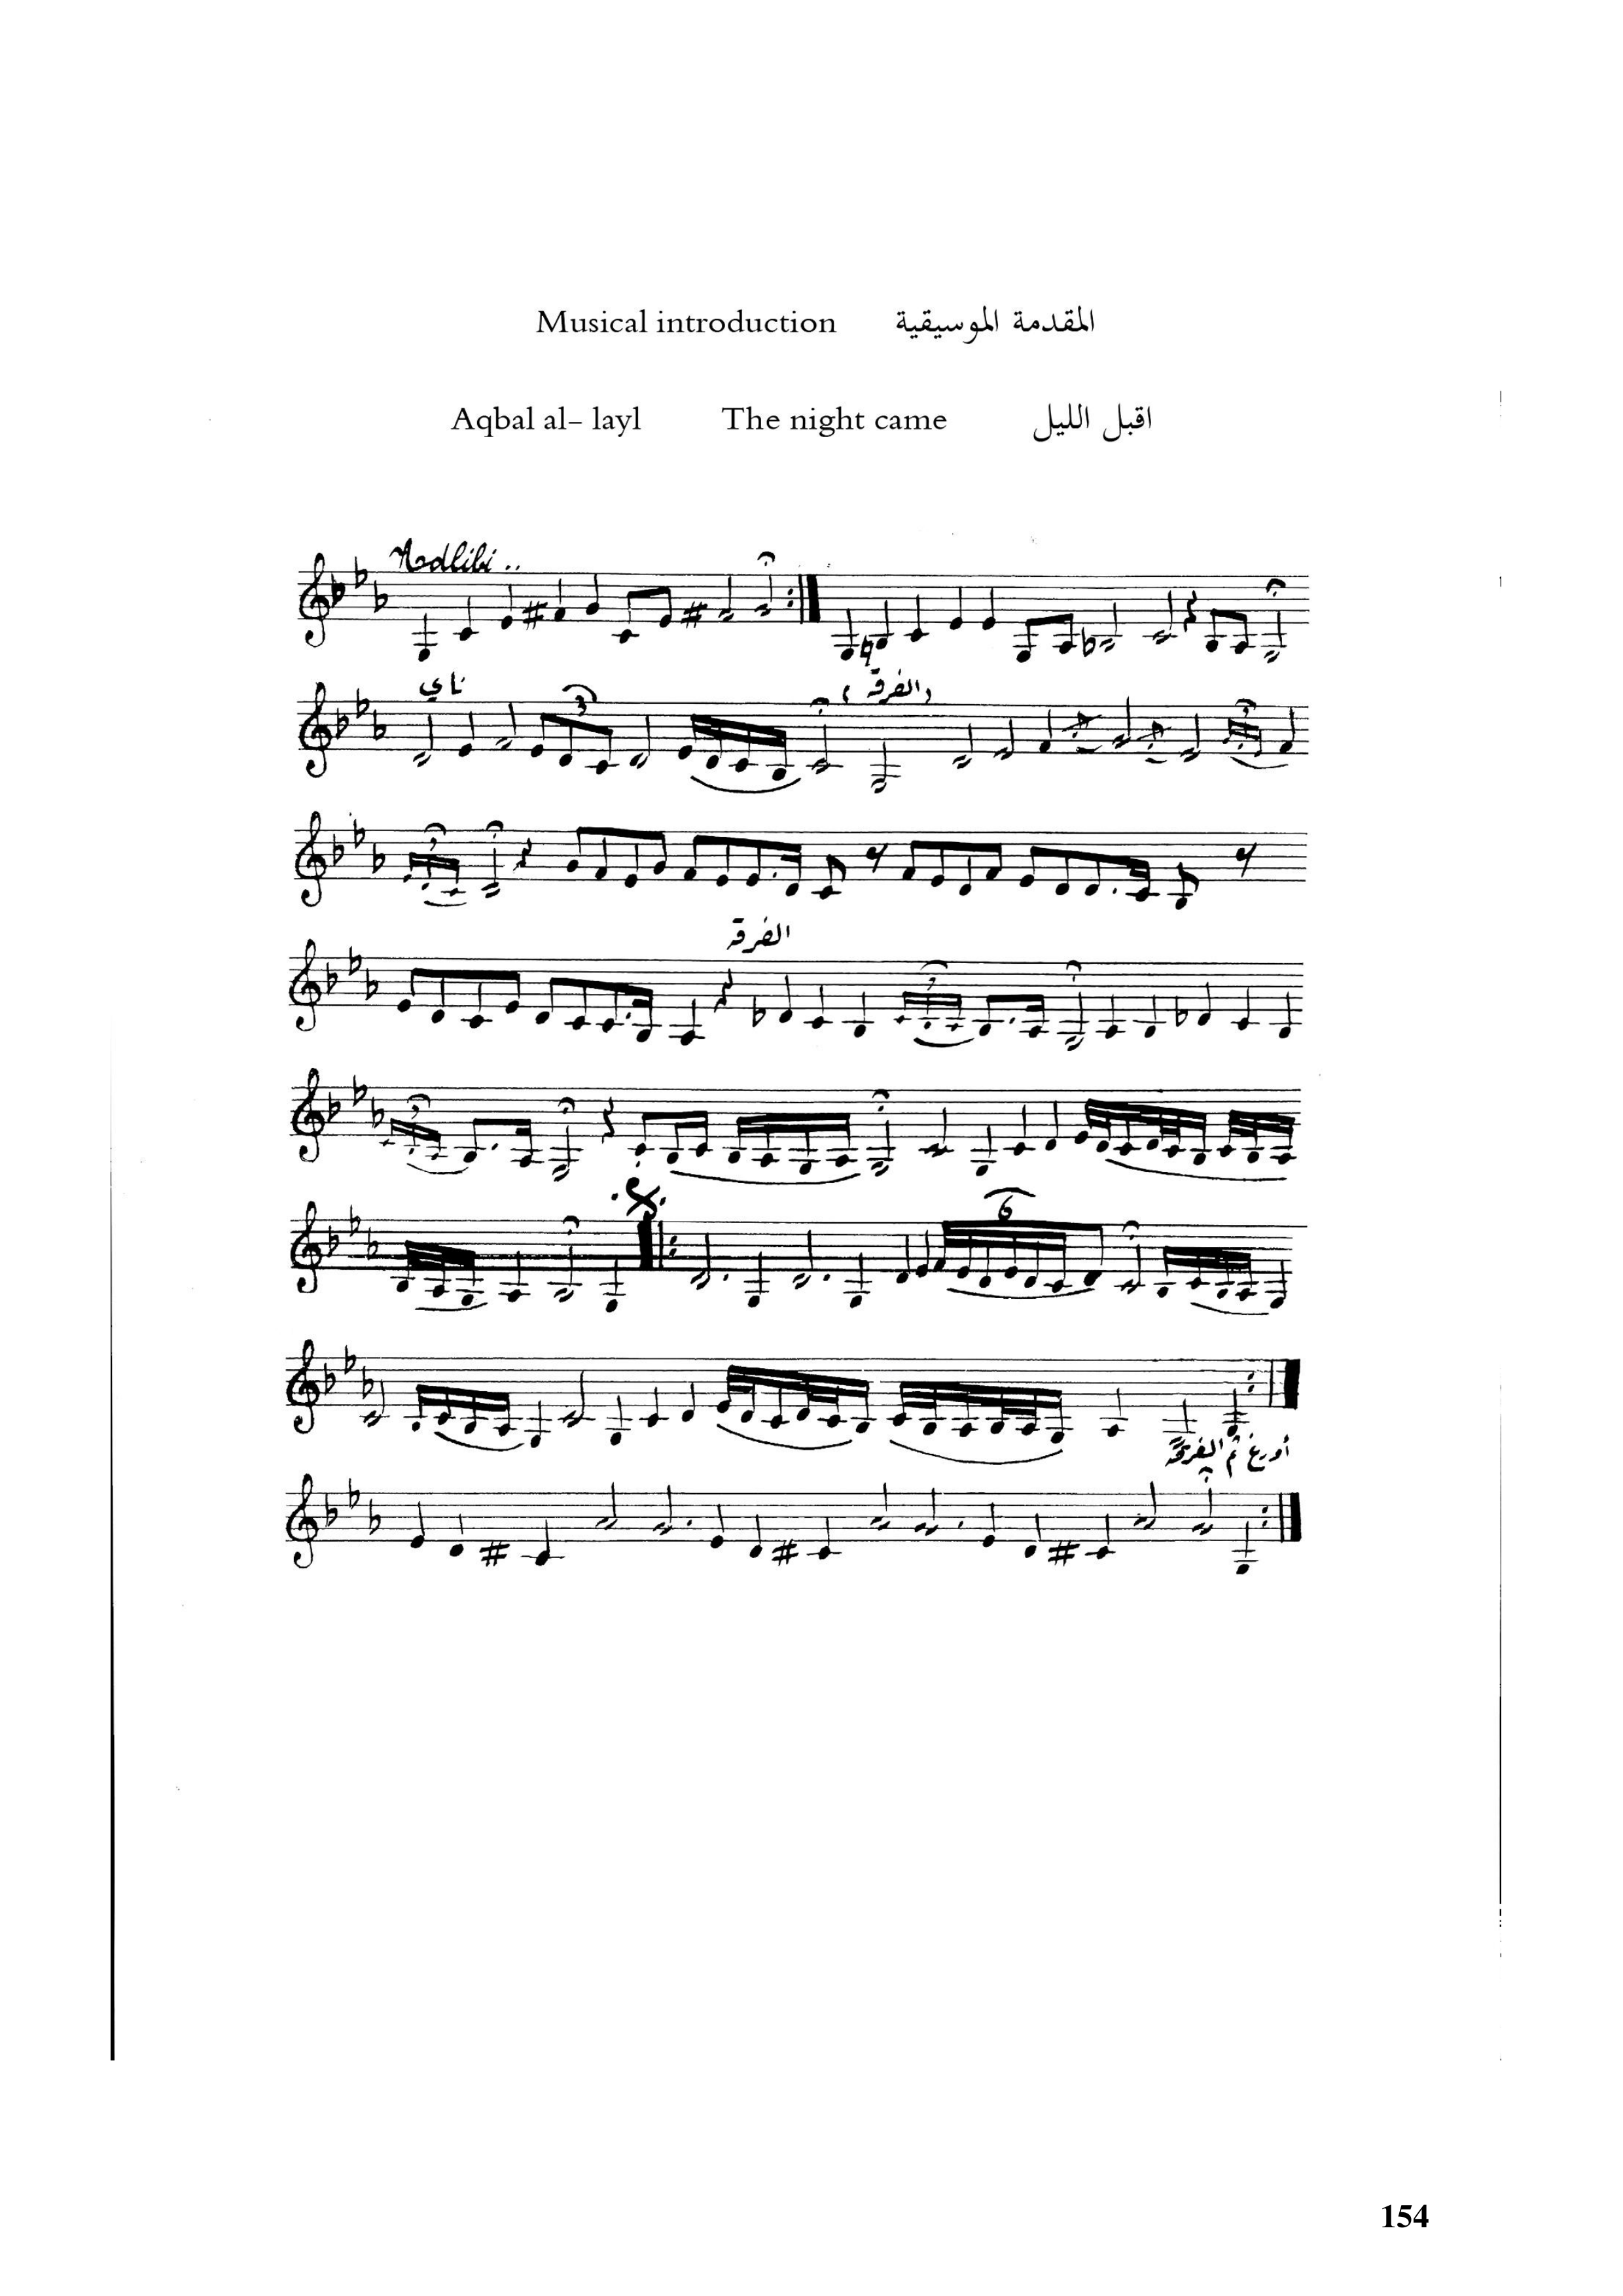 Musical introduction المقدمة الموسيقية
Aqbal al- layl The night came اقبل الليل
Adlibi ..
ناي
(الفرقة)
3
3
3
3
الفرقة
3
3
6
أورغ ثم الفرقة
154